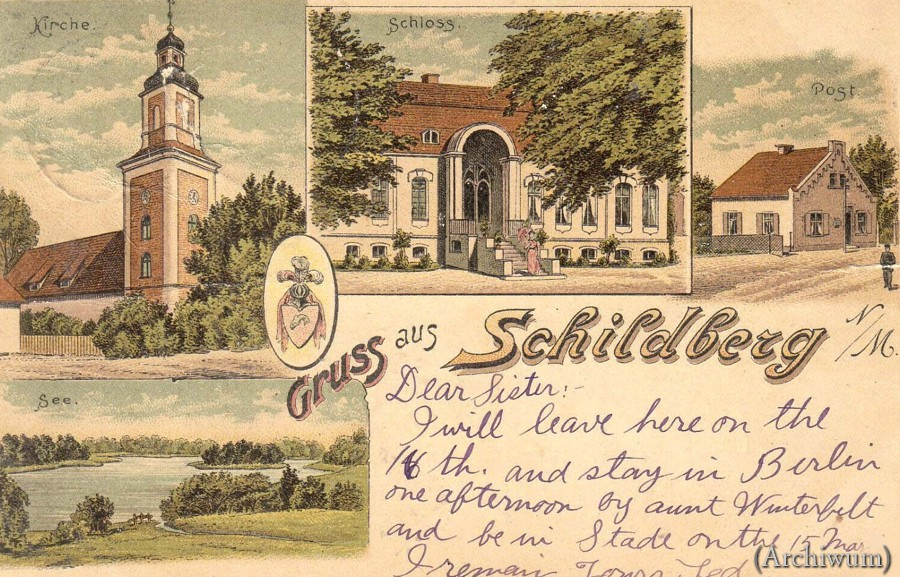 Kirche.
Schloss.
Post
Gruss aus Schildberg N/M.
See.
Dear Sister:-
I will leave here on the
th. and stay in Berlin
one afternoon by aunt Winterfelt
and be in Stade on the 15 Mar
I remain Yours Ted
(Archiwum)